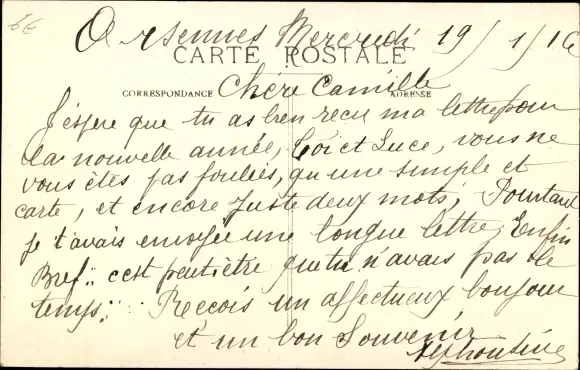 6€
Orsennes Mercredi 19/1/16
CARTE POSTALE
CORRESPONDANCE
ADRESSE
Chère Camille
J'éspère que tu as bien reçu ma lettre pour
la nouvelle année, Toi et Luce, vous ne
vous êtes pas fouliés, qu'une simple et
carte, et encore juste deux mots, Pourtant
je t'avais envoyée une longue lettre, Enfin
Bref.. c'est peutêtre que tu n'avais pas le
temps.. Reccois un affectueux bonjour
et un bon Souvenir
Alphonsine